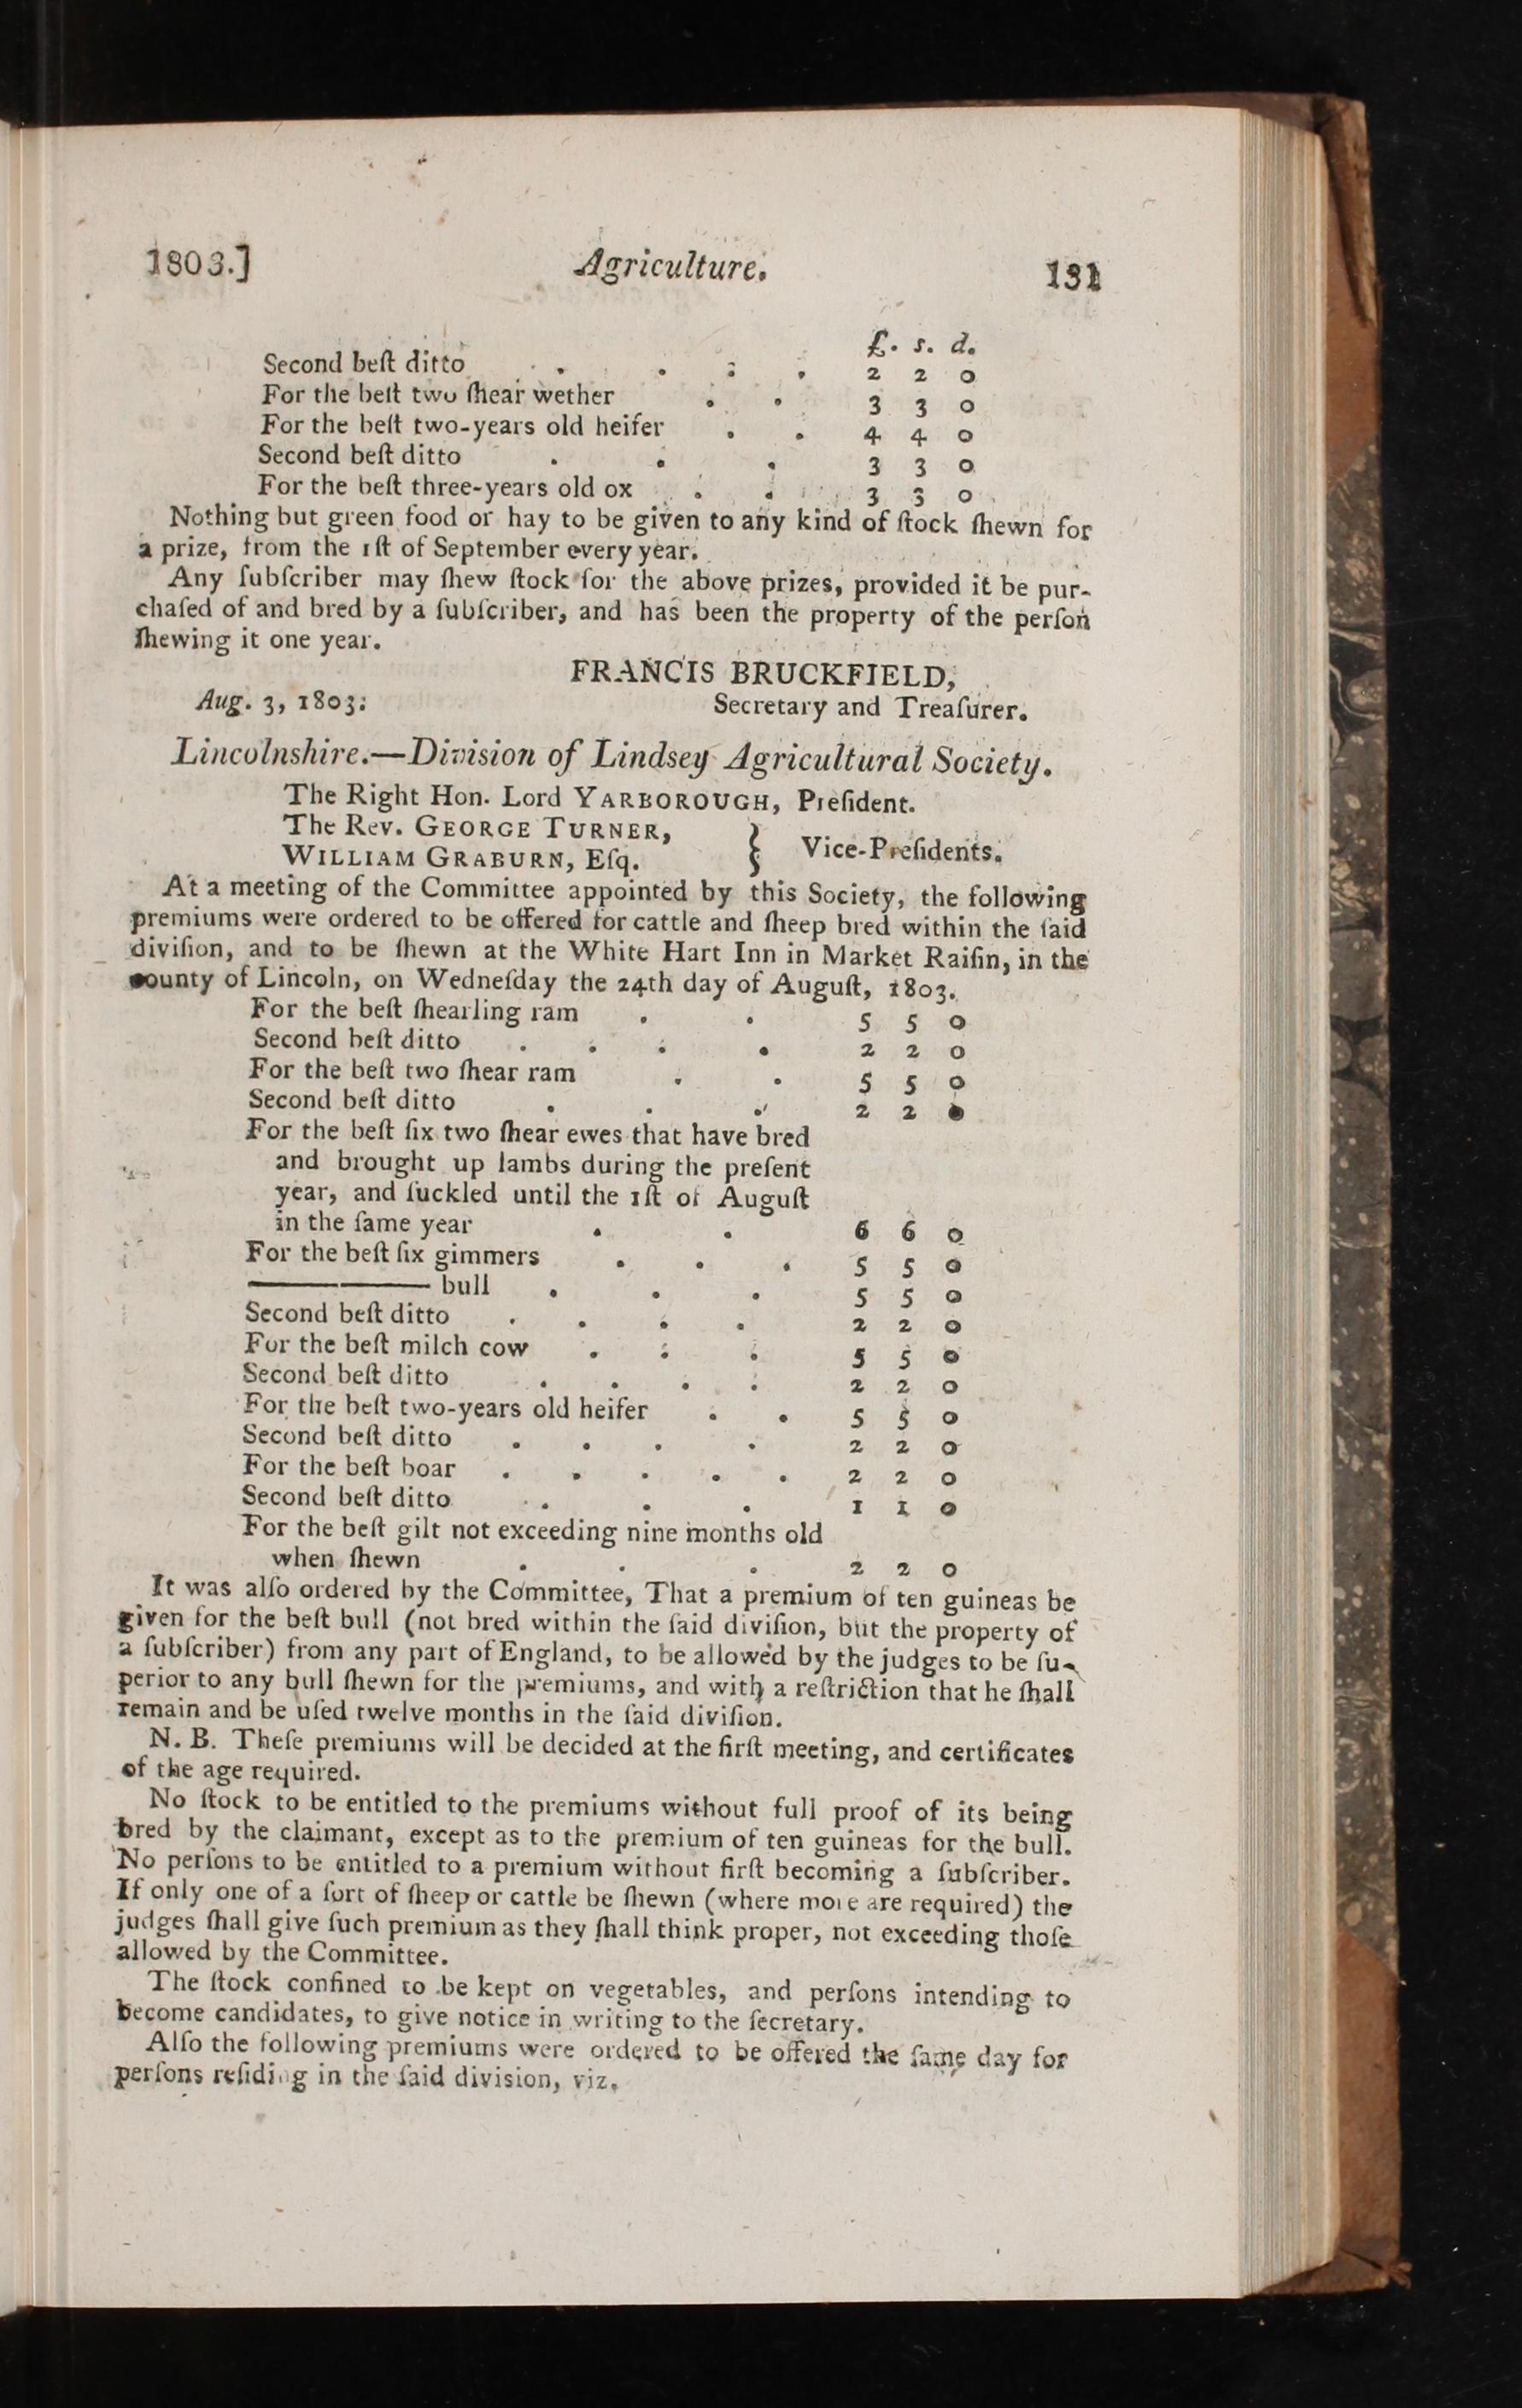 1803.] Agriculture. 131
£. s. d.
Second beſt ditto . . . . 2 2 0
For the beſt two ſhear wether . . 3 3 0
For the beſt two-years old heifer . . 4 4 0
Second beſt ditto . . . 3 3 0
For the beſt three-years old ox . . 3 3 0
Nothing but green food or hay to be given to any kind of ſtock ſhewn for
a prize, from the 1ſt of September every year.
Any ſubſcriber may ſhew ſtock for the above prizes, provided it be pur-
chaſed of and bred by a ſubſcriber, and has been the property of the perſon
ſhewing it one year.
FRANCIS BRUCKFIELD,
Aug. 3, 1803. Secretary and Treaſurer.
Lincolnshire.—Division of Lindsey Agricultural Society.
The Right Hon. Lord YARBOROUGH, Preſident.
The Rev. GEORGE TURNER,
WILLIAM GRABURN, Eſq. } Vice-Preſidents.
At a meeting of the Committee appointed by this Society, the following
premiums were ordered to be offered for cattle and ſheep bred within the ſaid
diviſion, and to be ſhewn at the White Hart Inn in Market Raiſin, in the
county of Lincoln, on Wedneſday the 24th day of Auguſt, 1803.
For the beſt ſhearling ram . . 5 5 0
Second beſt ditto . . . . 2 2 0
For the beſt two ſhear ram . . 5 5 0
Second beſt ditto . . . 2 2 0
For the beſt ſix two ſhear ewes that have bred
and brought up lambs during the preſent
year, and ſuckled until the 1ſt of Auguſt
in the ſame year . . 6 6 0
For the beſt ſix gimmers . . . 5 5 0
———— bull . . . 5 5 0
Second beſt ditto . . . . 2 2 0
For the beſt milch cow . . . 5 5 0
Second beſt ditto . . . . 2 2 0
For the beſt two-years old heifer . . 5 5 0
Second beſt ditto . . . . 2 2 0
For the beſt boar . . . . . 2 2 0
Second beſt ditto . . . 1 1 0
For the beſt gilt not exceeding nine months old
when ſhewn . . . 2 2 0
It was alſo ordered by the Committee, That a premium of ten guineas be
given for the beſt bull (not bred within the ſaid diviſion, but the property of
a ſubſcriber) from any part of England, to be allowed by the judges to be ſu-
perior to any bull ſhewn for the premiums, and with a reſtriction that he ſhall
remain and be uſed twelve months in the ſaid diviſion.
N. B. Theſe premiums will be decided at the firſt meeting, and certificates
of the age required.
No ſtock to be entitled to the premiums without full proof of its being
bred by the claimant, except as to the premium of ten guineas for the bull.
No perſons to be entitled to a premium without firſt becoming a ſubſcriber.
If only one of a ſort of ſheep or cattle be ſhewn (where more are required) the
judges ſhall give ſuch premium as they ſhall think proper, not exceeding thoſe
allowed by the Committee.
The ſtock confined to be kept on vegetables, and perſons intending to
become candidates, to give notice in writing to the ſecretary.
Alſo the following premiums were ordered to be offered the ſame day for
perſons reſiding in the ſaid division, viz.